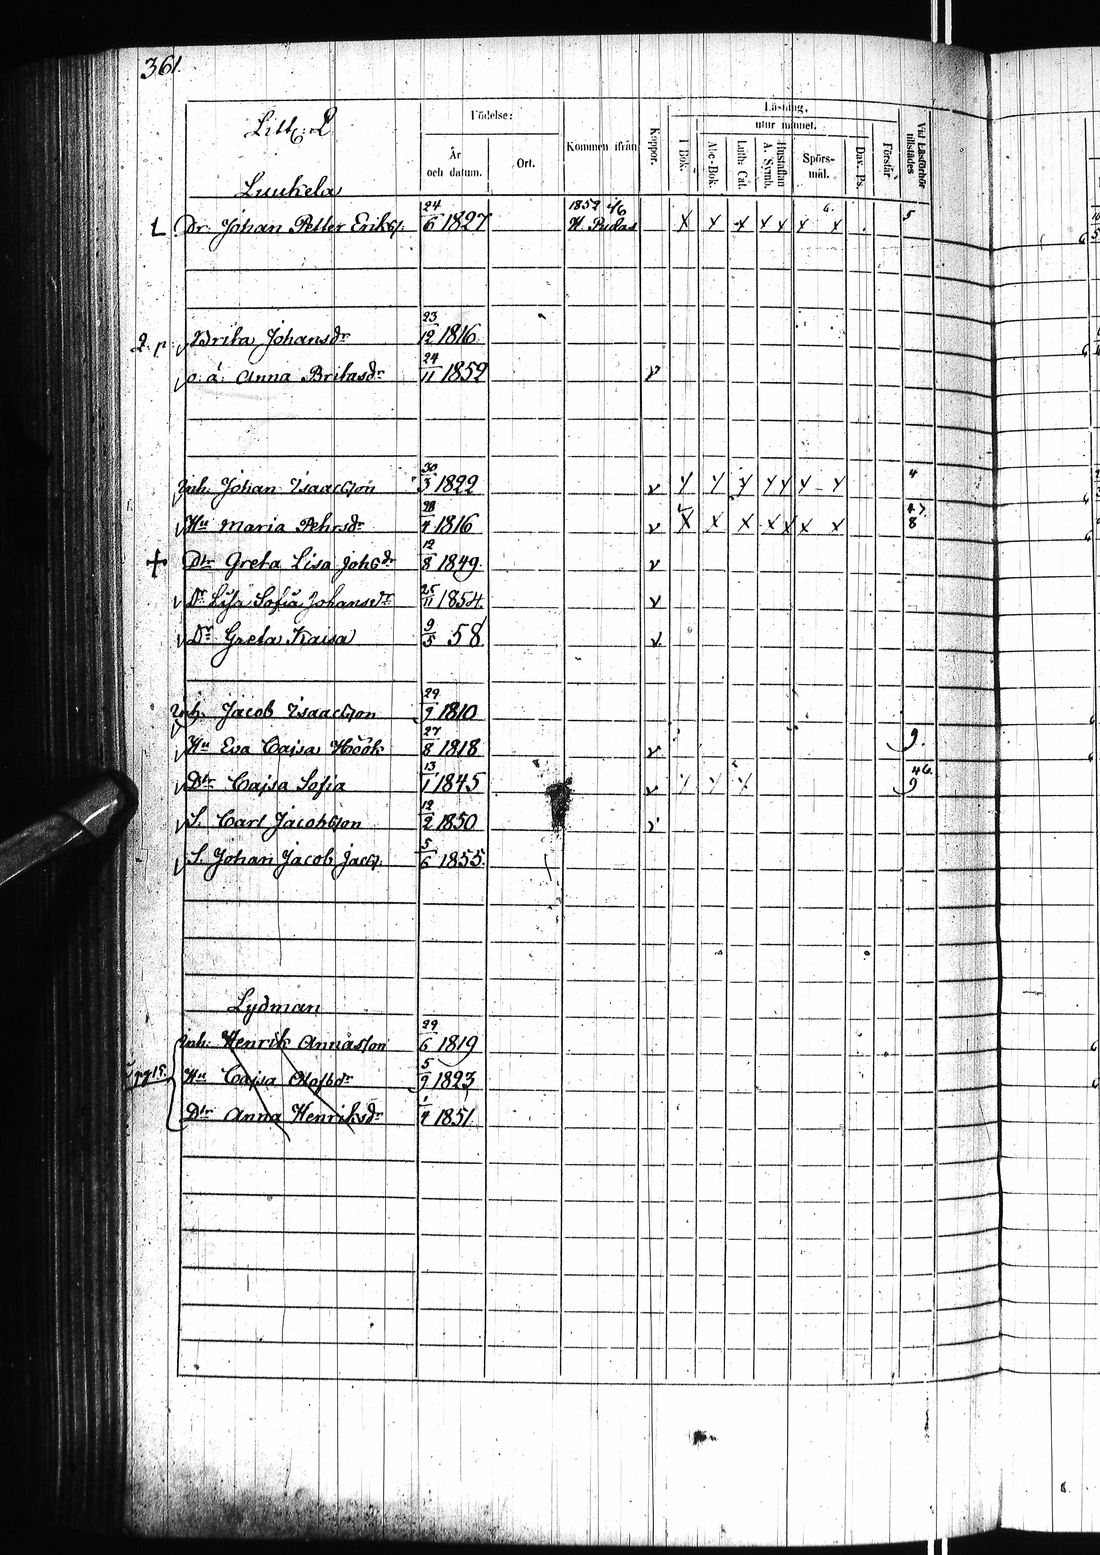 361.
Litt. L
Födelse:
År och datum.
Ort.
Kommen ifrån
Koppor.
Läsning,
utur minnet.
I Bok.
Abc-Bok.
Luth. Cat.
Hustaflan A. Symb.
Spörs-mål.
Dav. Ps.
Förstår
Vid Läsförhör tillstädes
Luukela
L Dr. Johan Petter Eriks. 24/6 1827 1852 46 N. Pudas x x x x x x x 6. 5
Brita Johansdr 23/12 1816
o. ä. Anna Britasdr 24/11 1852 v
Inh. Johan Isaacsson 30/3 1822 v 4
Hu Maria Pehrsdr 28/4 1816 v x x x x x x x 47 8
+ Dtr Greta Lisa Johsdr 12/8 1849. v
Dr Lisa Sofia Johansdr 25/11 1854. v
Dr Greta Kaisa 9/5 58 v
Inh. Jacob Isaacsson 29/9 1810
Hu Eva Cajsa Höök 27/8 1818 v 9.
Dtr Cajsa Sofia 13/1 1845 v 46. 9
S. Carl Jacobsson 12/2 1850 v
S. Johan Jacob Jacs. 5/6 1855.
Lydman
Inh. Henrik Annasson 29/6 1819
Hu Cajsa Olofsdr 5/9 1823
Dtr Anna Henriksdr 1/4 1851.